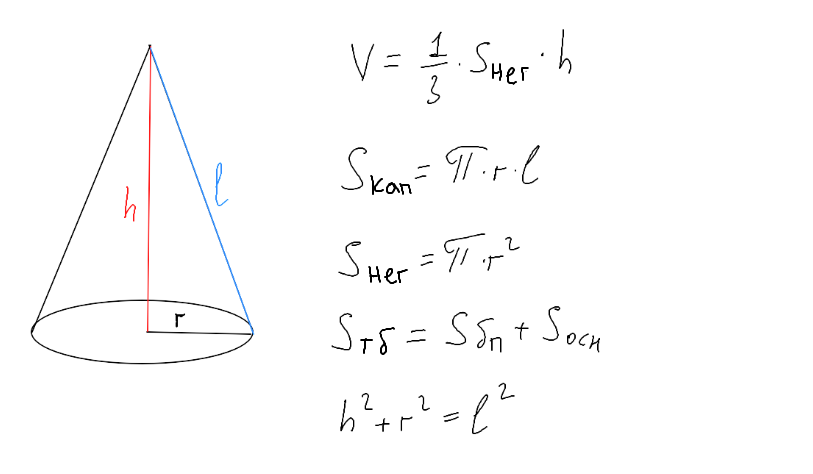 V = 1/3 · Sнег · h
Sкап = π · r · l
Sнег = π · r²
Sтб = Sбп + Sосн
h² + r² = l²
h
l
r